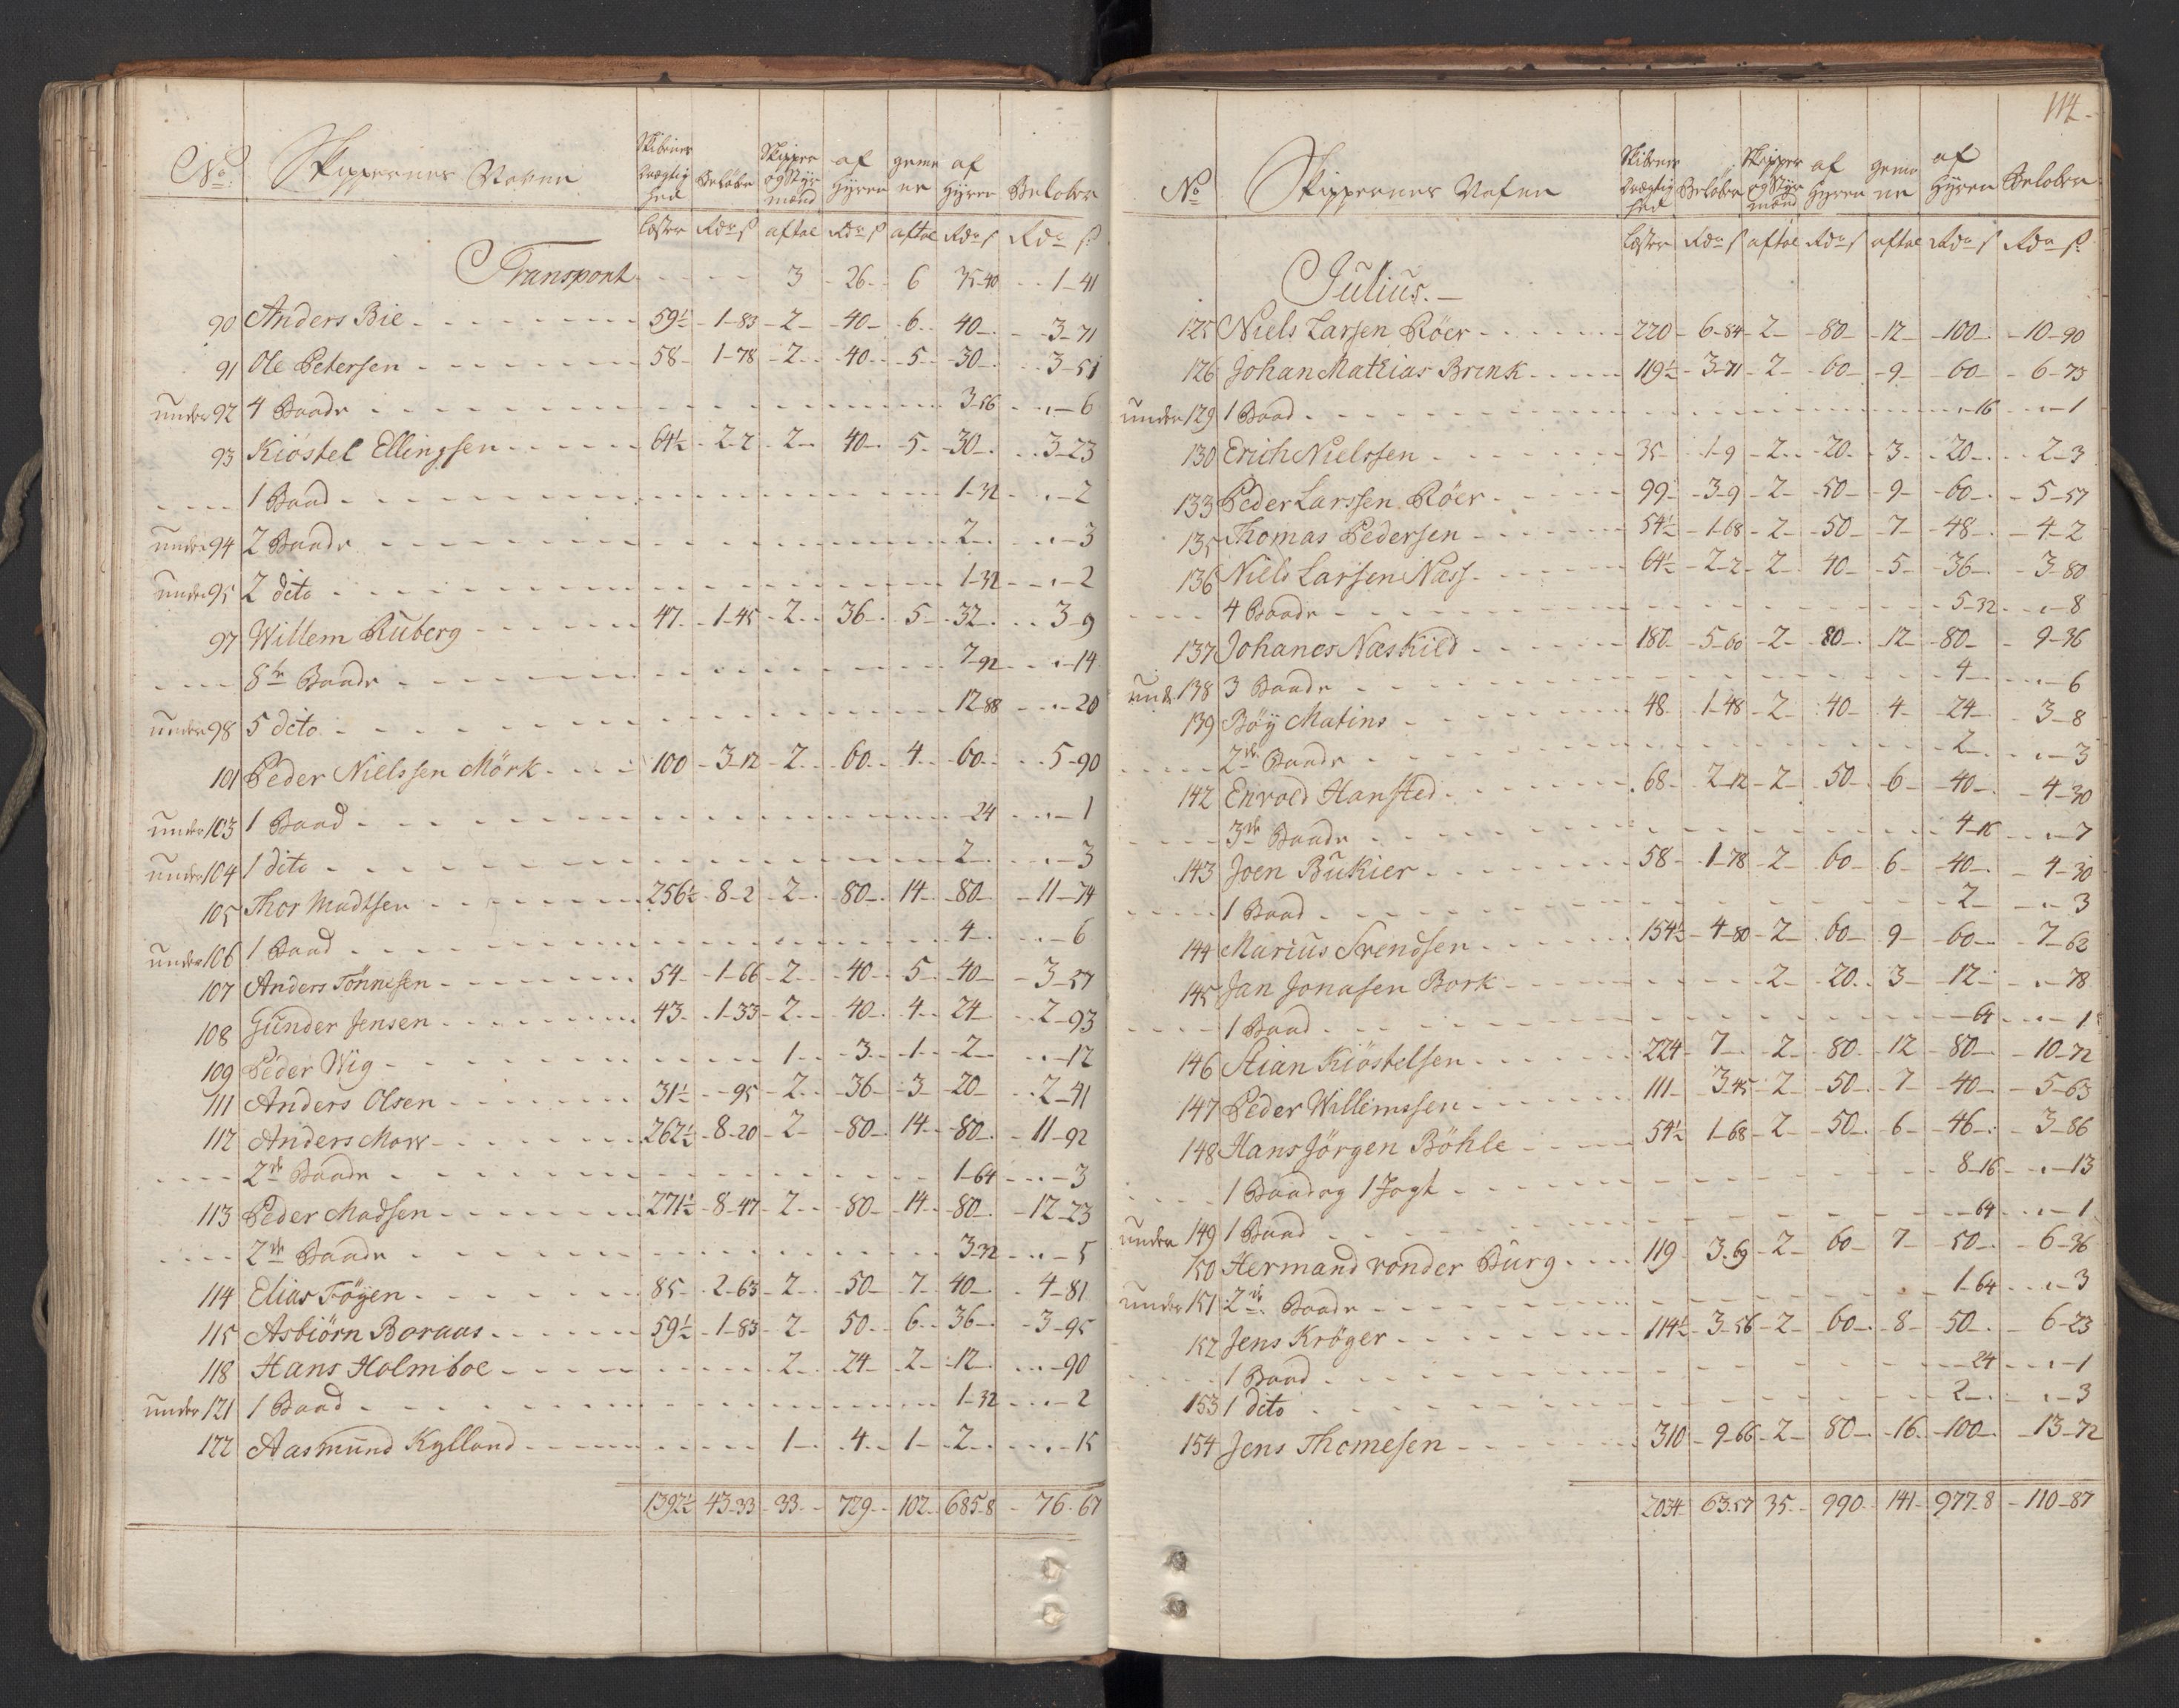 No. Skippernes Nafne Skibenes Drægtighed Beløber Skipper og Styrmænd af Hyren gemene af Hyren Beløber
læster Rdr ß aftal Rdr ß aftal Rdr ß Rdr ß
Transport 3 26 6 35-40 1-41
90 Anders Bie 59½ 1-83 2 40 6 40 3-71
91 Ole Petersen 58 1-78 2 40 5 30 3-51
under 92 4 Baade 3-56 6
93 Kiöstel Ellingsen 64½ 2-2 2 40 5 30 3-23
1 Baad 1-32 2
under 94 2 Baade 2 3
under 95 2 dito 1-32 2
97 Willem Ruberg 47 1-45 2 36 5 32 3-9
8te Baade 7-92 14
under 98 5 dito 12-88 20
101 Peder Nielssen Mörk 100 3-12 2 60 4 60 5-90
under 103 1 Baad 24 1
under 104 1 dito 2 3
105 Thor Madtsen 256½ 8-2 2 80 14 80 11-74
under 106 1 Baad 4 6
107 Anders Tönnesen 54 1-66 2 40 5 40 3-57
108 Gunder Jensen 43 1-33 2 40 4 24 2-93
109 Peder Wig 1 3 1 2 12
111 Anders Olsen 31½ 95 2 36 3 20 2-41
112 Anders Morr 262½ 8-20 2 80 14 80 11-92
2de Baade 1-64 3
113 Peder Madsen 271½ 8-47 2 80 14 80 12-23
2de Baade 3-32 5
114 Elias Föyen 85 2-63 2 50 7 40 4-81
115 Asbiörn Boraas 59½ 1-83 2 50 6 36 3-95
118 Hans Holmboe 2 24 2 12 90
under 121 1 Baad 1-32 2
122 Aasmund Kylland 1 4 1 2 15
1392½ 43-33 33 729 102 685-8 76-67
114
No Skippernes Nafne Skibenes Drægtighed Beløber Skipper og Styrmænd af Hyren gemene af Hyren Beløber
læster Rdr ß aftal Rdr ß aftal Rdr ß Rdr ß
Julius.
125 Niels Larsen Röer 220 6-84 2 80 12 100 10-90
126 Johan Mathias Brink 119½ 3-71 2 60 9 60 6-73
under 129 1 Baad 16 1
130 Erich Nielssen 35 1-9 2 20 3 20 2-3
133 Peder Larssen Röer 99 3-9 2 50 9 60 5-57
135 Thomas Pedersen 54½ 1-68 2 50 7 48 4-2
136 Niels Larsen Næss 64½ 2-2 2 40 5 36 3-80
4 Baade 5-32 8
137 Johanes Næskild 180 5-60 2 80 12 80 9-36
und. 138 3 Baade 4 6
139 Böy Matins 48 1-48 2 40 4 24 3-8
2de Baade 2 3
142 Envold Hansted 68 2-12 2 50 6 40 4-30
3de Baade 4-16 7
143 Joen Bukier 58 1-78 2 60 6 40 4-30
1 Baad 2 3
144 Marius Svendsen 154½ 4-80 2 60 9 60 7-62
145 Jan Jonasen Bork 2 20 3 12 78
1 Baad 64 1
146 Stian Kiöstelsen 224 7 2 80 12 80 10-72
147 Peder Willemssen 111 3-45 2 50 7 40 5-63
148 Hans Jörgen Böhle 54½ 1-68 2 50 6 46 3-86
1 Baad og 1 Jagt 8-16 13
under 149 1 Baad 64 1
150 Hermand vonder Burg 119 3-69 2 60 7 50 6-36
under 151 2de Baade 1-64 3
152 Jens Kröger 114½ 3-56 2 60 8 50 6-23
1 Baad 24 1
153 1 dito 2 3
154 Jens Thomesen 310 9-66 2 80 16 100 13-72
2034 63-57 35 990 141 977-8 110-87